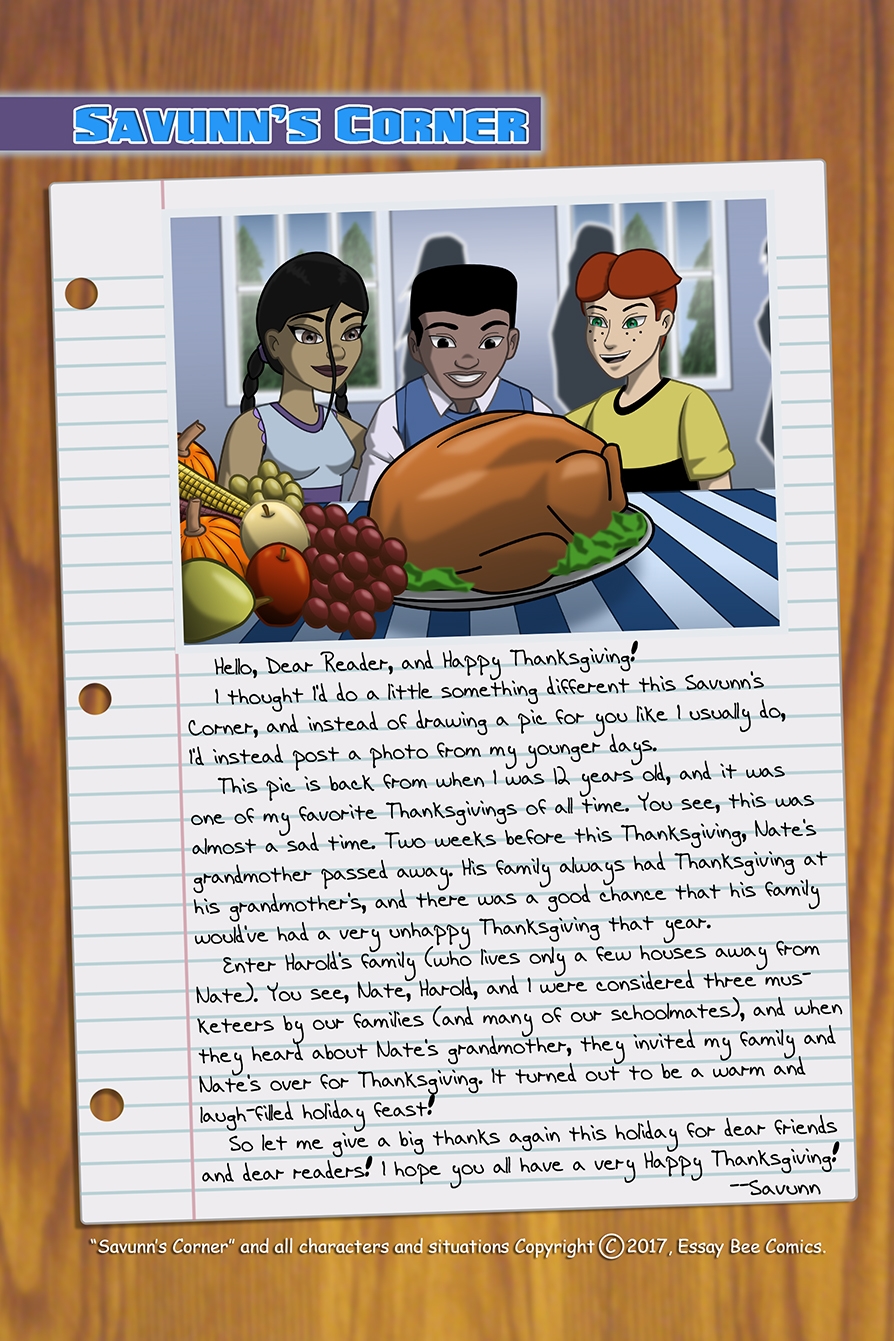 SAVUNN'S CORNER
Hello, Dear Reader, and Happy Thanksgiving!
I thought I'd do a little something different this Savunn's
Corner, and instead of drawing a pic for you like I usually do,
I'd instead post a photo from my younger days.
This pic is back from when I was 12 years old, and it was
one of my favorite Thanksgivings of all time. You see, this was
almost a sad time. Two weeks before this Thanksgiving, Nate's
grandmother passed away. His family always had Thanksgiving at
his grandmother's, and there was a good chance that his family
would've had a very unhappy Thanksgiving that year.
Enter Harold's family (who lives only a few houses away from
Nate). You see, Nate, Harold, and I were considered three mus-
keteers by our families (and many of our schoolmates), and when
they heard about Nate's grandmother, they invited my family and
Nate's over for Thanksgiving. It turned out to be a warm and
laugh-filled holiday feast!
So let me give a big thanks again this holiday for dear friends
and dear readers! I hope you all have a very Happy Thanksgiving!
--Savunn
"Savunn's Corner" and all characters and situations Copyright © 2017, Essay Bee Comics.